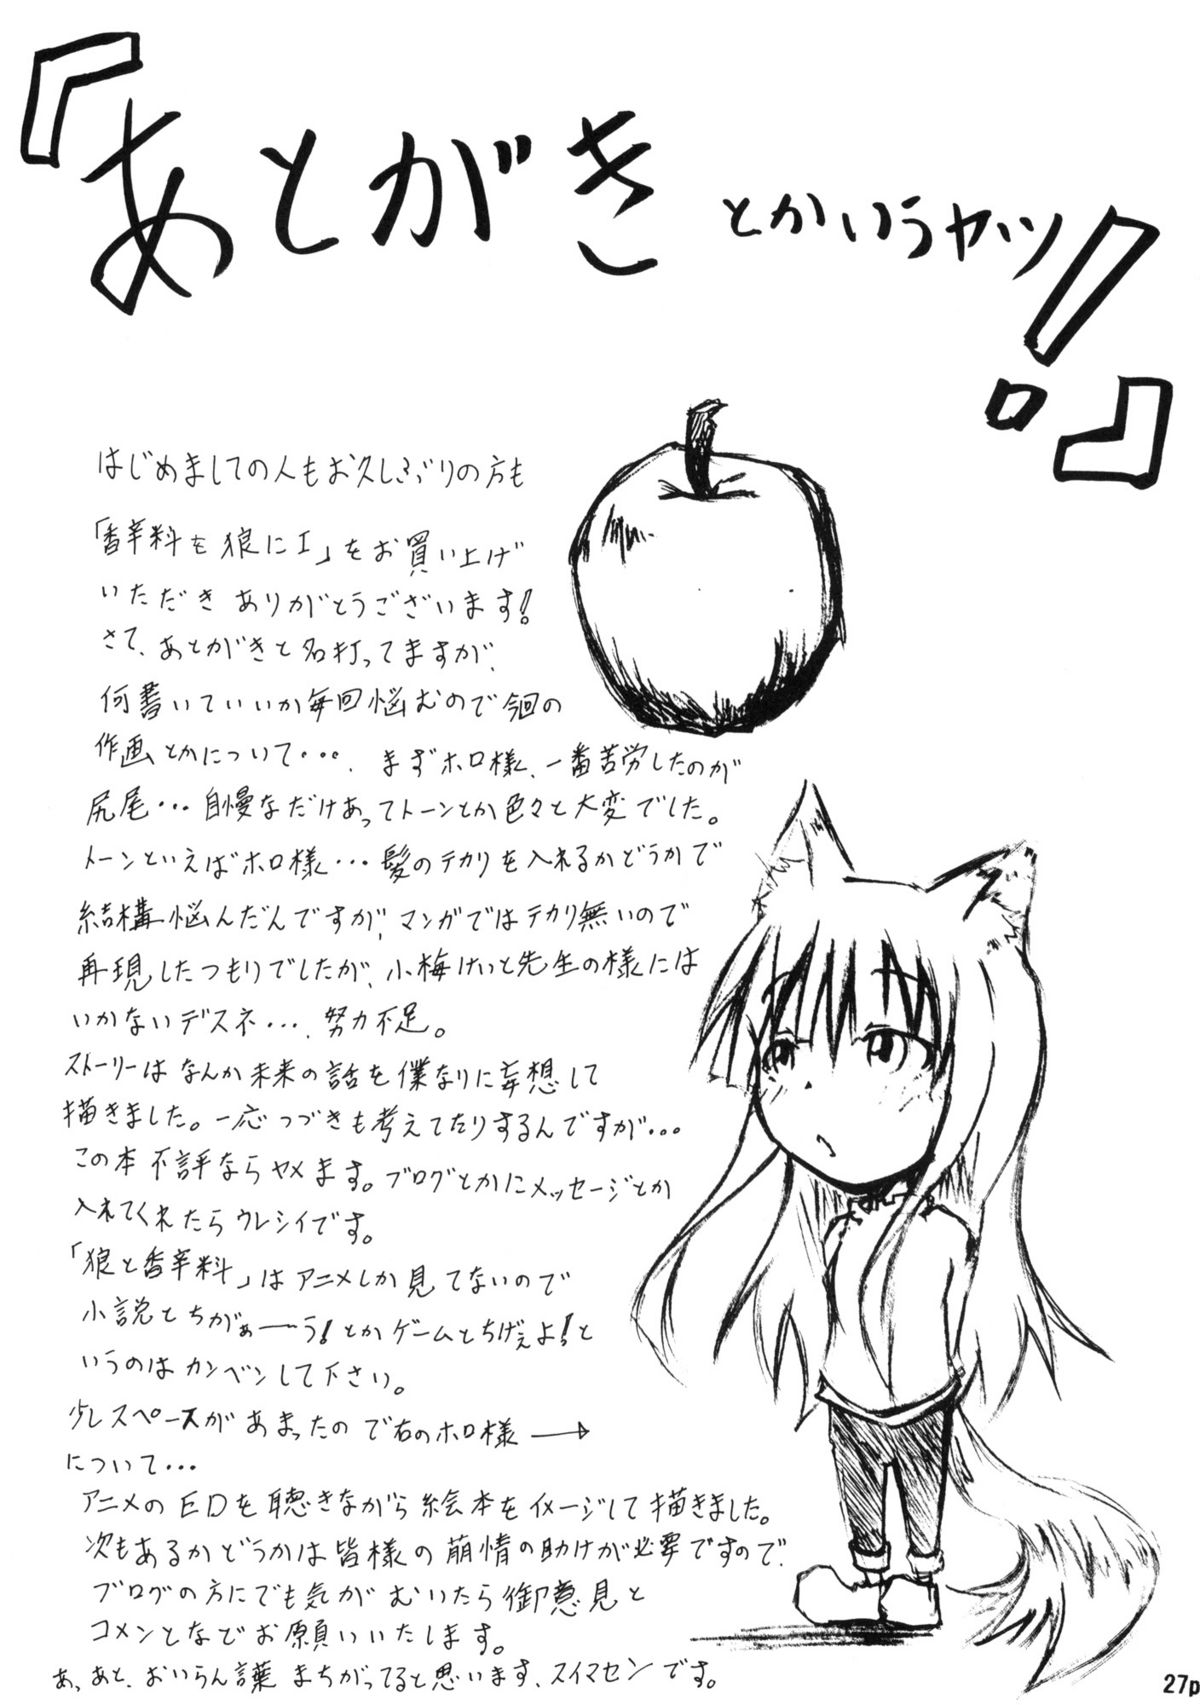 『あとがき とかいうヤツ!』
はじめましての人もお久しぶりの方も
「香辛料を狼にⅠ」をお買い上げ
いただき ありがとうございます!
さて、あとがきと名打ってますが、
何書いていいか毎回悩むので今回の
作画とかについて・・・、まずホロ様、一番苦労したのが
尻尾・・・自慢なだけあってトーンとか色々と大変でした。
トーンといえばホロ様・・・髪のテカリを入れるかどうかで
結構悩んだんですが、マンガではテカリ無いので
再現したつもりでしたが、小梅けいと先生の様には
いかないデスネ・・・、努力不足。
ストーリーはなんか未来の話を僕なりに妄想して
描きました。一応つづきも考えてたりするんですが・・・
この本不評ならヤメます。ブログとかにメッセージとか
入れてくれたらウレシイです。
「狼と香辛料」はアニメしか見てないので
小説とちがぁーーう!とかゲームとちげぇよ!と
いうのはカンベンして下さい。
少しスペースがあまったので右のホロ様 →
について・・・
アニメのEDを聴きながら絵本をイメージして描きました。
次もあるかどうかは皆様の萌情の助けが必要ですので、
ブログの方にでも気がむいたら御意見と
コメントなでお願いいたします。
あ、あと、おいらん言葉まちがってると思います、スイマセンです。
27p